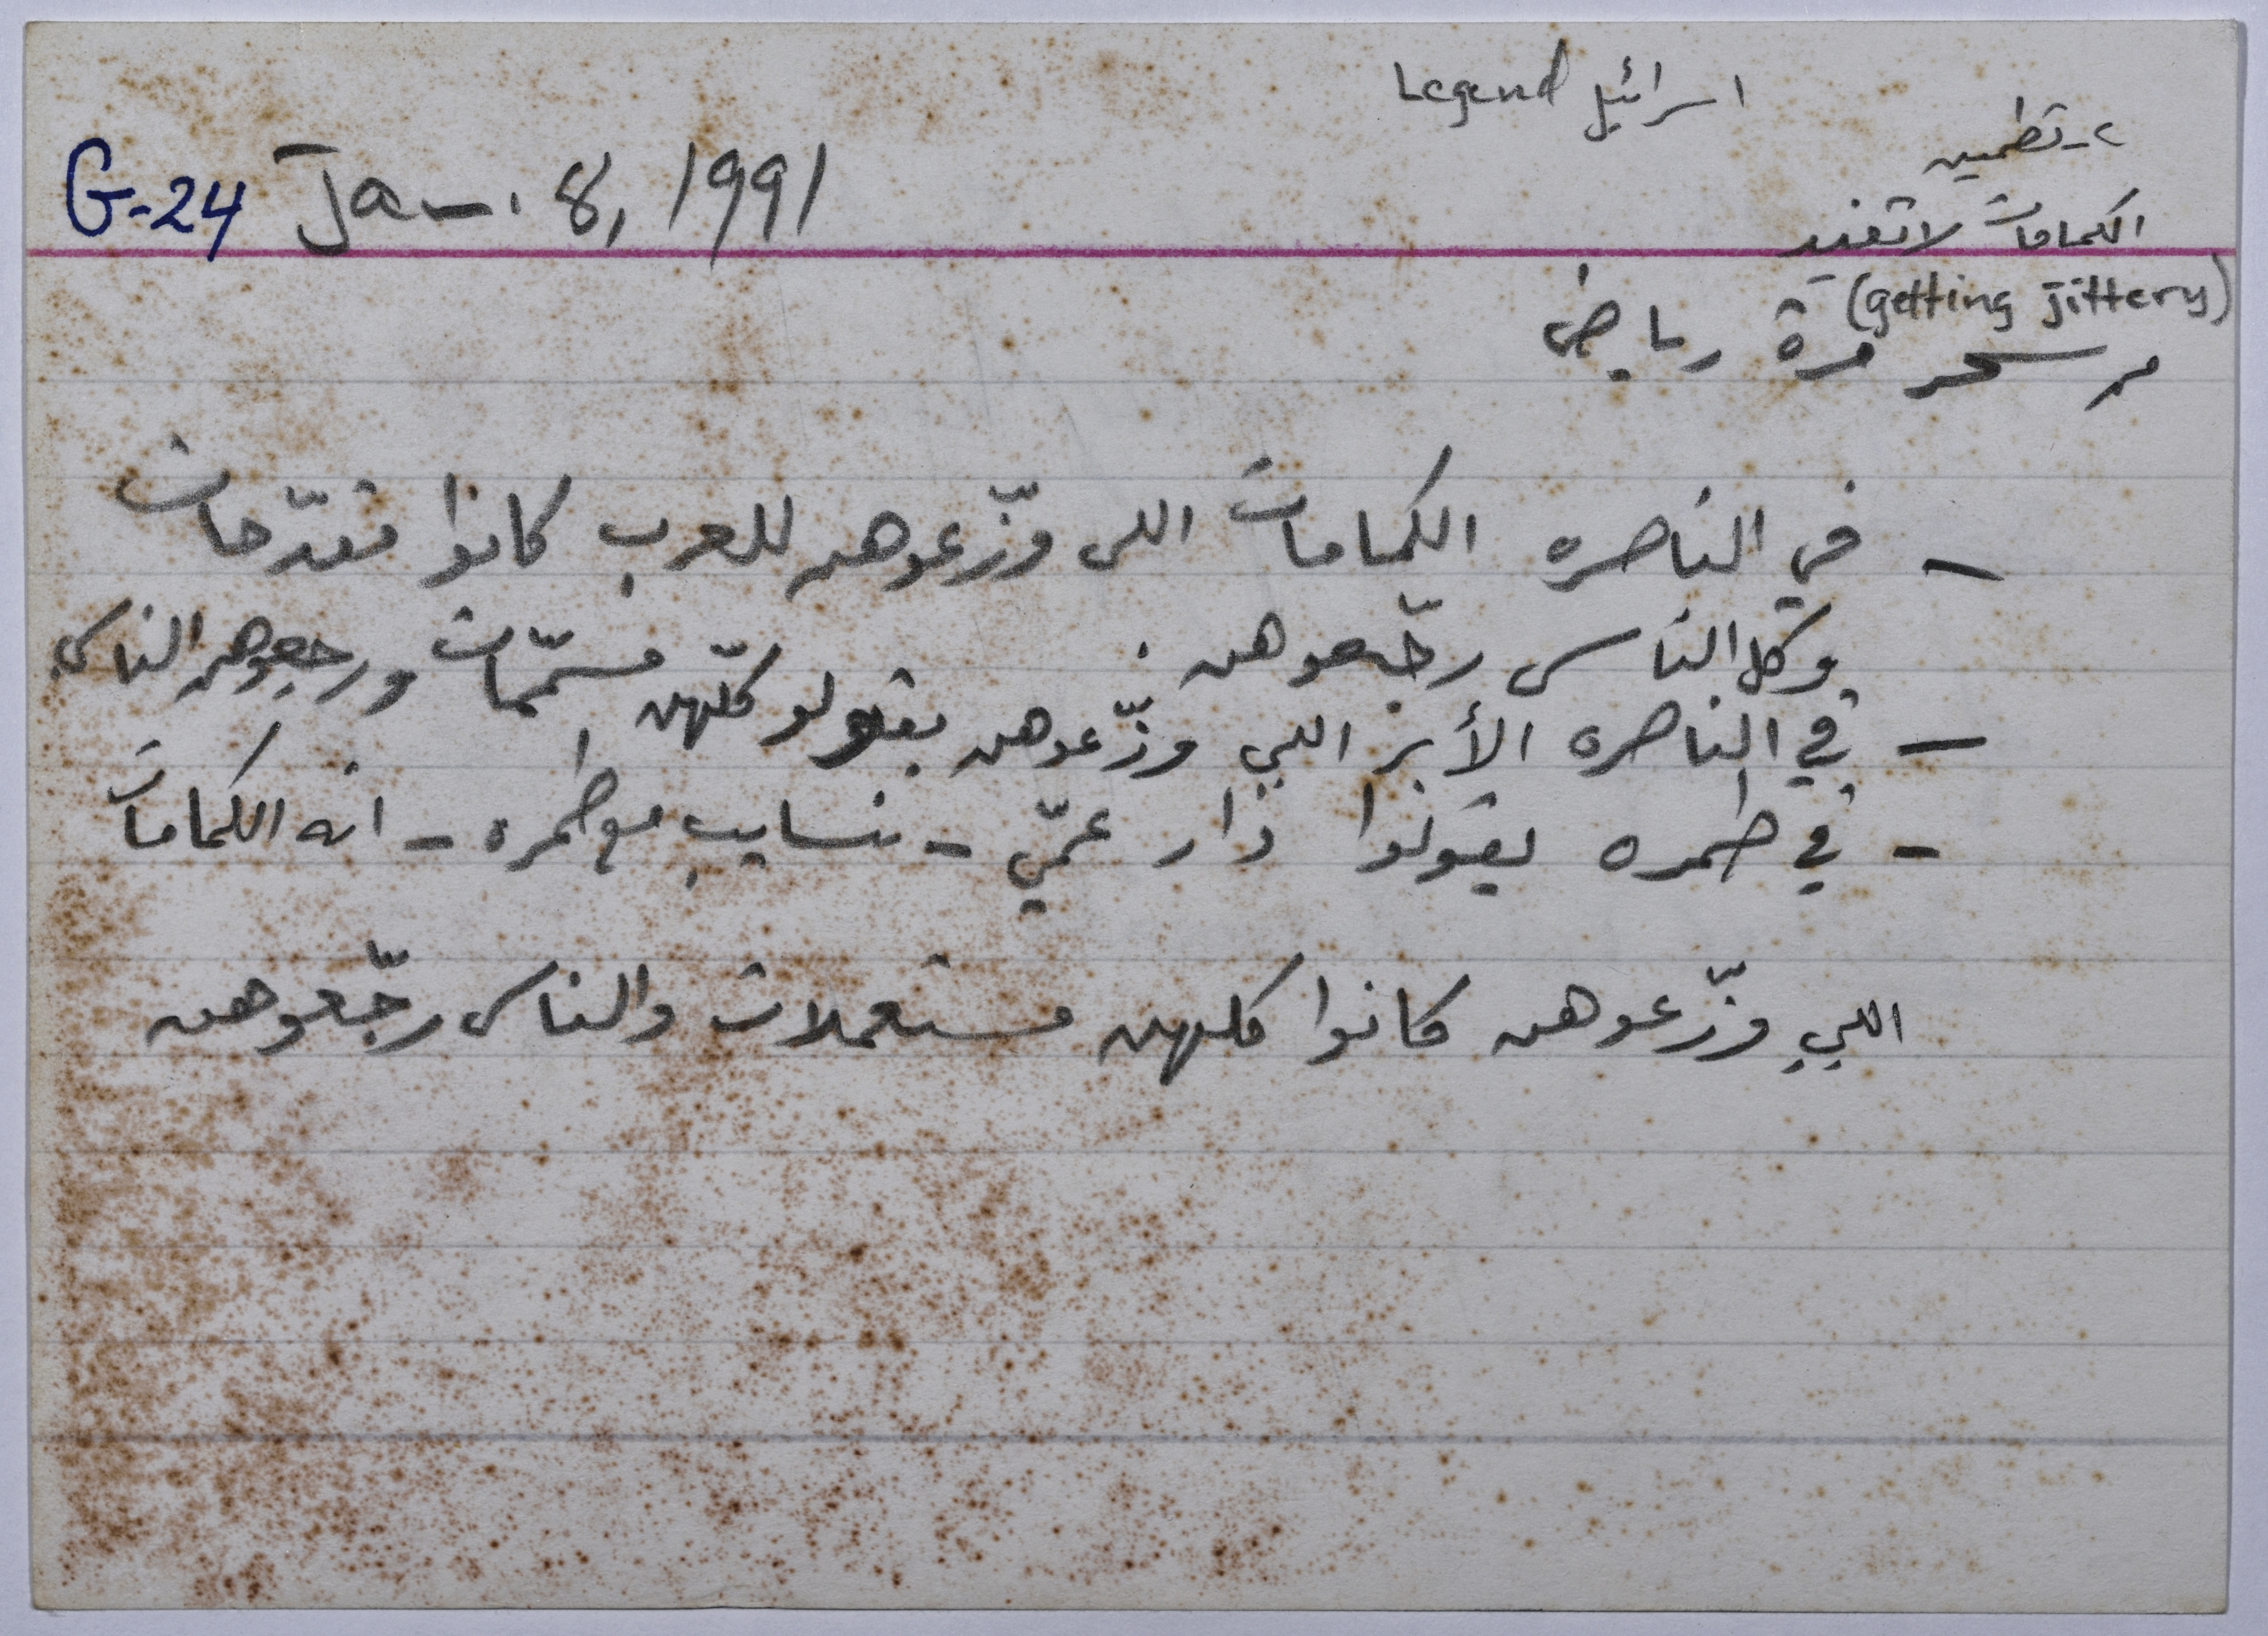 اسرائيل Legend
٢- تطمين
G-24 Jan. 8, 1991
الكمامات لا تفيد
(getting jittery)
سحر مرة رياض
- في الناصره الكمامات اللي وزّعوهن للعرب كانوا مقدّحات
وكل الناس رجّعوهن.
- في الناصره الأبر اللي وزّعوهن بقولو كلّهن مسمّمات ورجعوهن الناس
- في طمره يقولوا دار عمّي - نسايب مع طمره - انه الكمامات
اللي وزّعوهن كانوا كلهن مستعملات والناس رجّعوهن